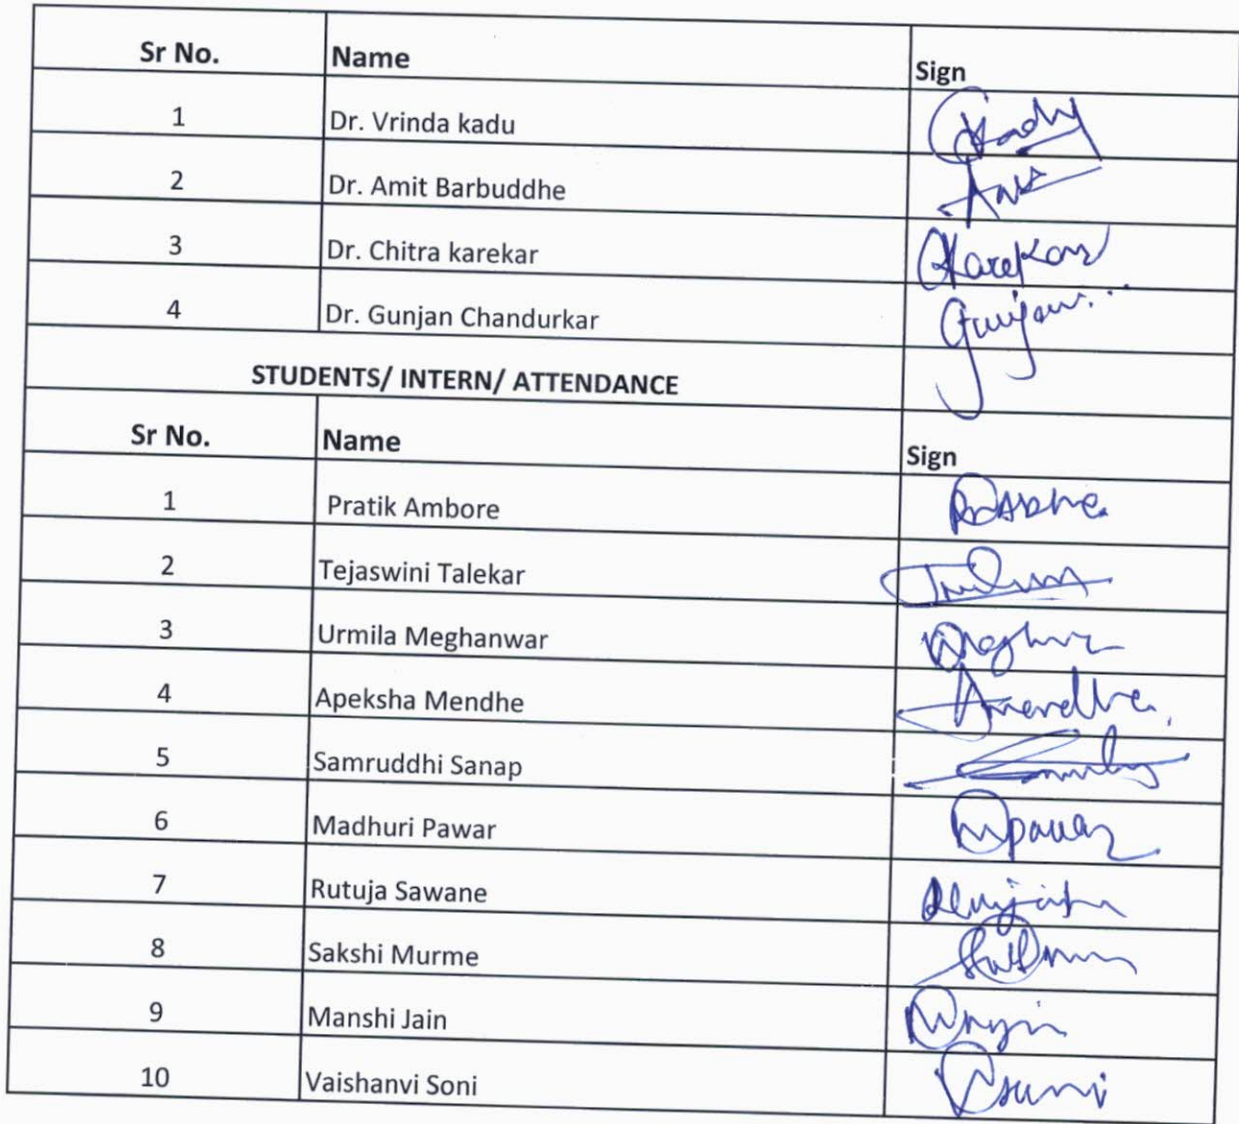 Sr No. Name Sign
1 Dr. Vrinda kadu
2 Dr. Amit Barbuddhe
3 Dr. Chitra karekar Karekar
4 Dr. Gunjan Chandurkar Gunjan...
STUDENTS/ INTERN/ ATTENDANCE
Sr No. Name Sign
1 Pratik Ambore
2 Tejaswini Talekar
3 Urmila Meghanwar
4 Apeksha Mendhe Amendhe.
5 Samruddhi Sanap
6 Madhuri Pawar Mpawar
7 Rutuja Sawane
8 Sakshi Murme
9 Manshi Jain
10 Vaishanvi Soni Vsoni